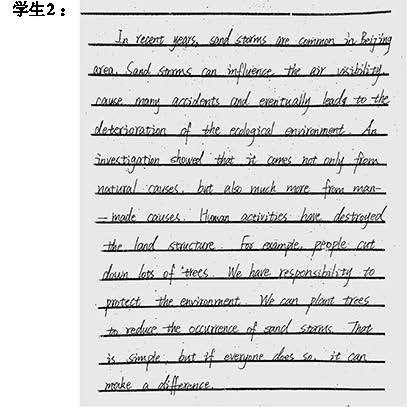 学生2：
In recent years, sand storms are common in Beijing
area. Sand storms can influence the air visibility,
cause many accidents and eventually leads to the
deterioration of the ecological environment. An
investigation showed that it comes not only from
natural causes, but also much more from man-
-made causes. Human activities have destroyed
the land structure. For example, people cut
down lots of trees. We have responsibility to
protect the environment. We can plant trees
to reduce the occurrence of sand storms. That
is simple, but if everyone does so, it can
make a difference.